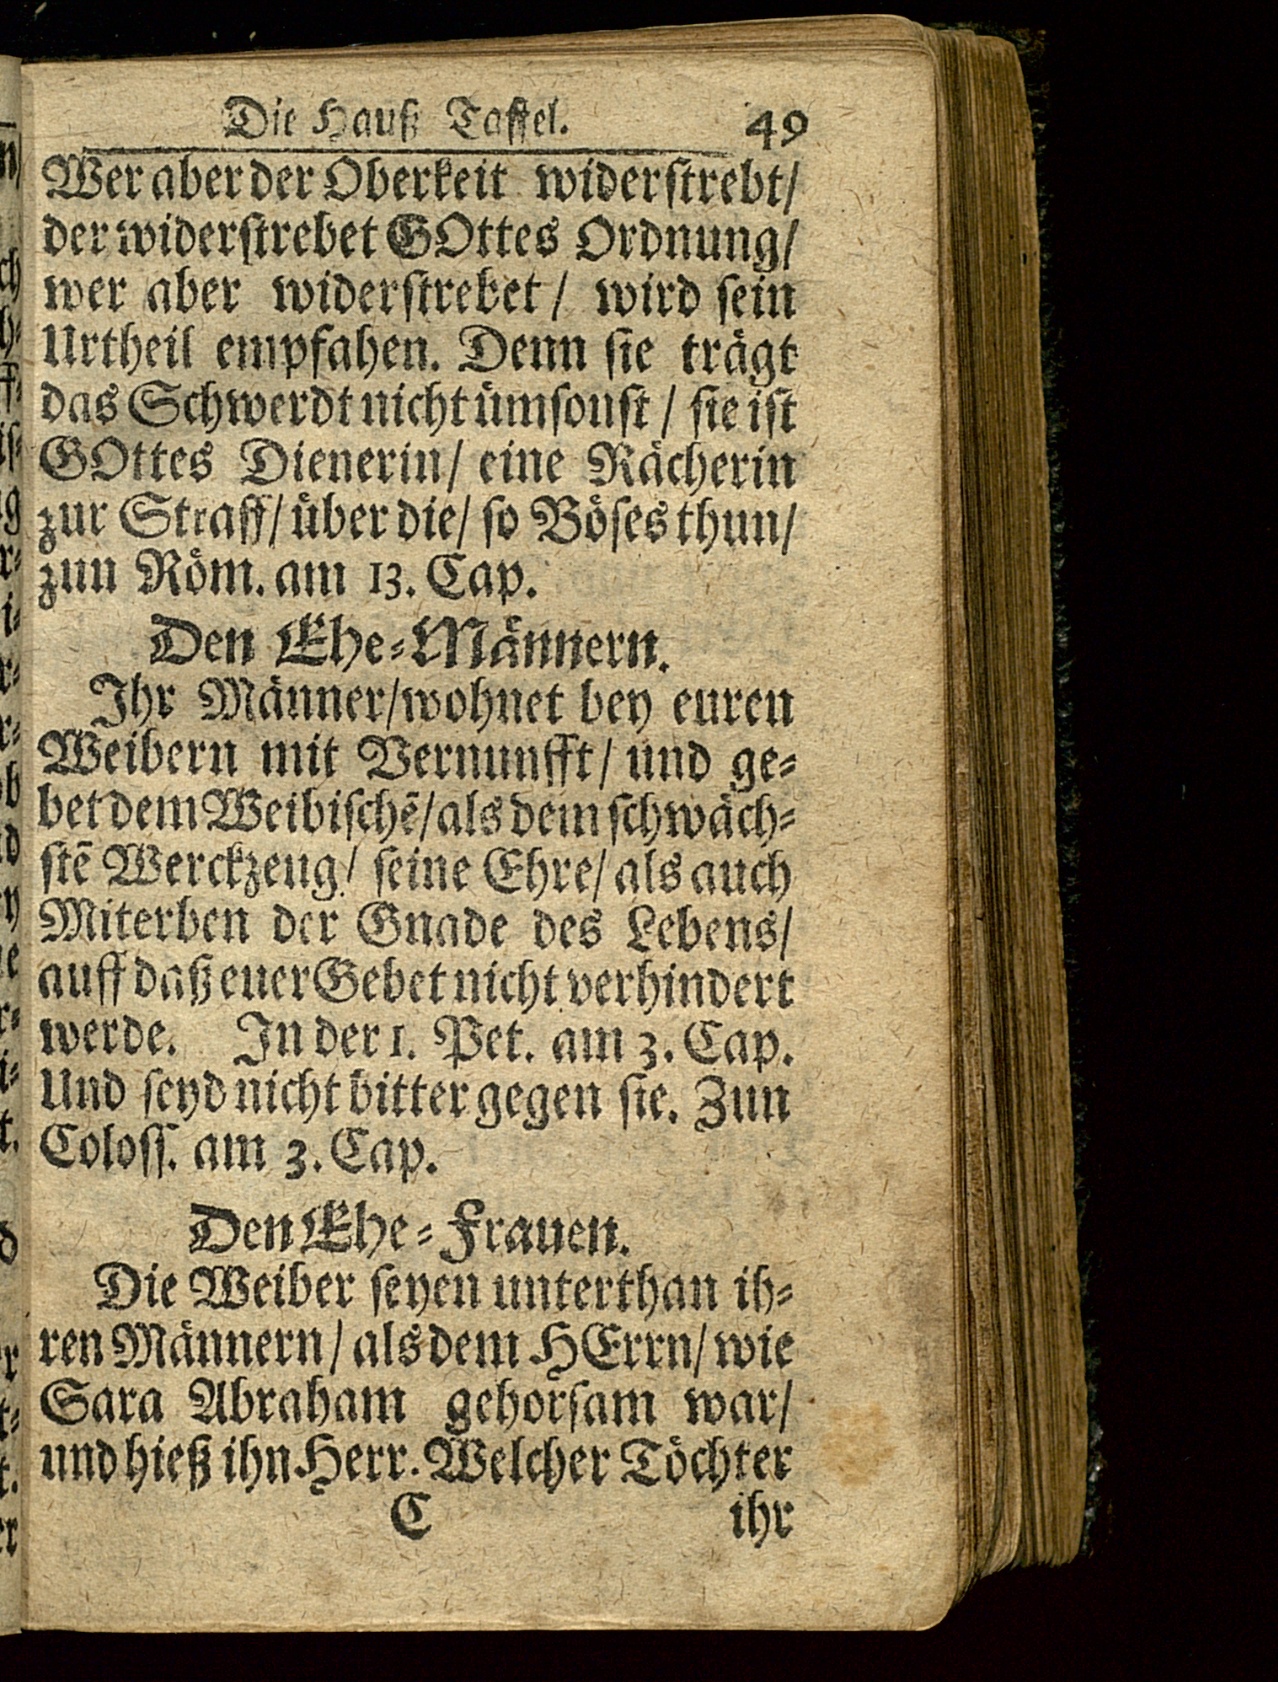 Die Hauß Taffel. 49
Wer aber der Oberkeit widerstrebt/
der widerstrebet GOttes Ordnung/
wer aber widerstrebet / wird sein
Urtheil empfahen. Denn sie trägt
das Schwerdt nicht ümsonst / sie ist
GOttes Dienerin/ eine Rächerin
zur Straff/ über die/ so Böses thun/
zun Röm. am 13. Cap.
Den Ehe-Männern.
Ihr Männer/wohnet bey euren
Weibern mit Vernunfft/ und ge-
bet dem Weibischē/als dem schwäch-
stē Werckzeug/ seine Ehre/ als auch
Miterben der Gnade des Lebens/
auff daß euer Gebet nicht verhindert
werde. In der 1. Pet. am 3. Cap.
Und seyd nicht bitter gegen sie. Zun
Coloss. am 3. Cap.
Den Ehe-Frauen.
Die Weiber seyen unterthan ih-
ren Männern/ als dem HErrn/ wie
Sara Abraham gehorsam war/
und hieß ihn Herr. Welcher Töchter
C ihr